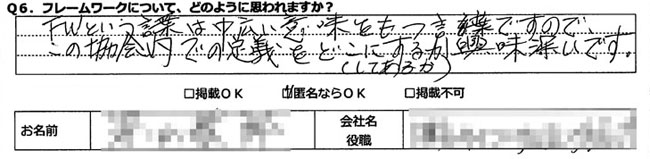 Q6．フレームワークについて、どのように思われますか？
FWという言葉は巾広い意味をもつ言葉ですので、
この協会内での定義をどこにするか興味深いです。
(してあるか)
□掲載OK ☑匿名ならOK □掲載不可
お名前 会社名
役職